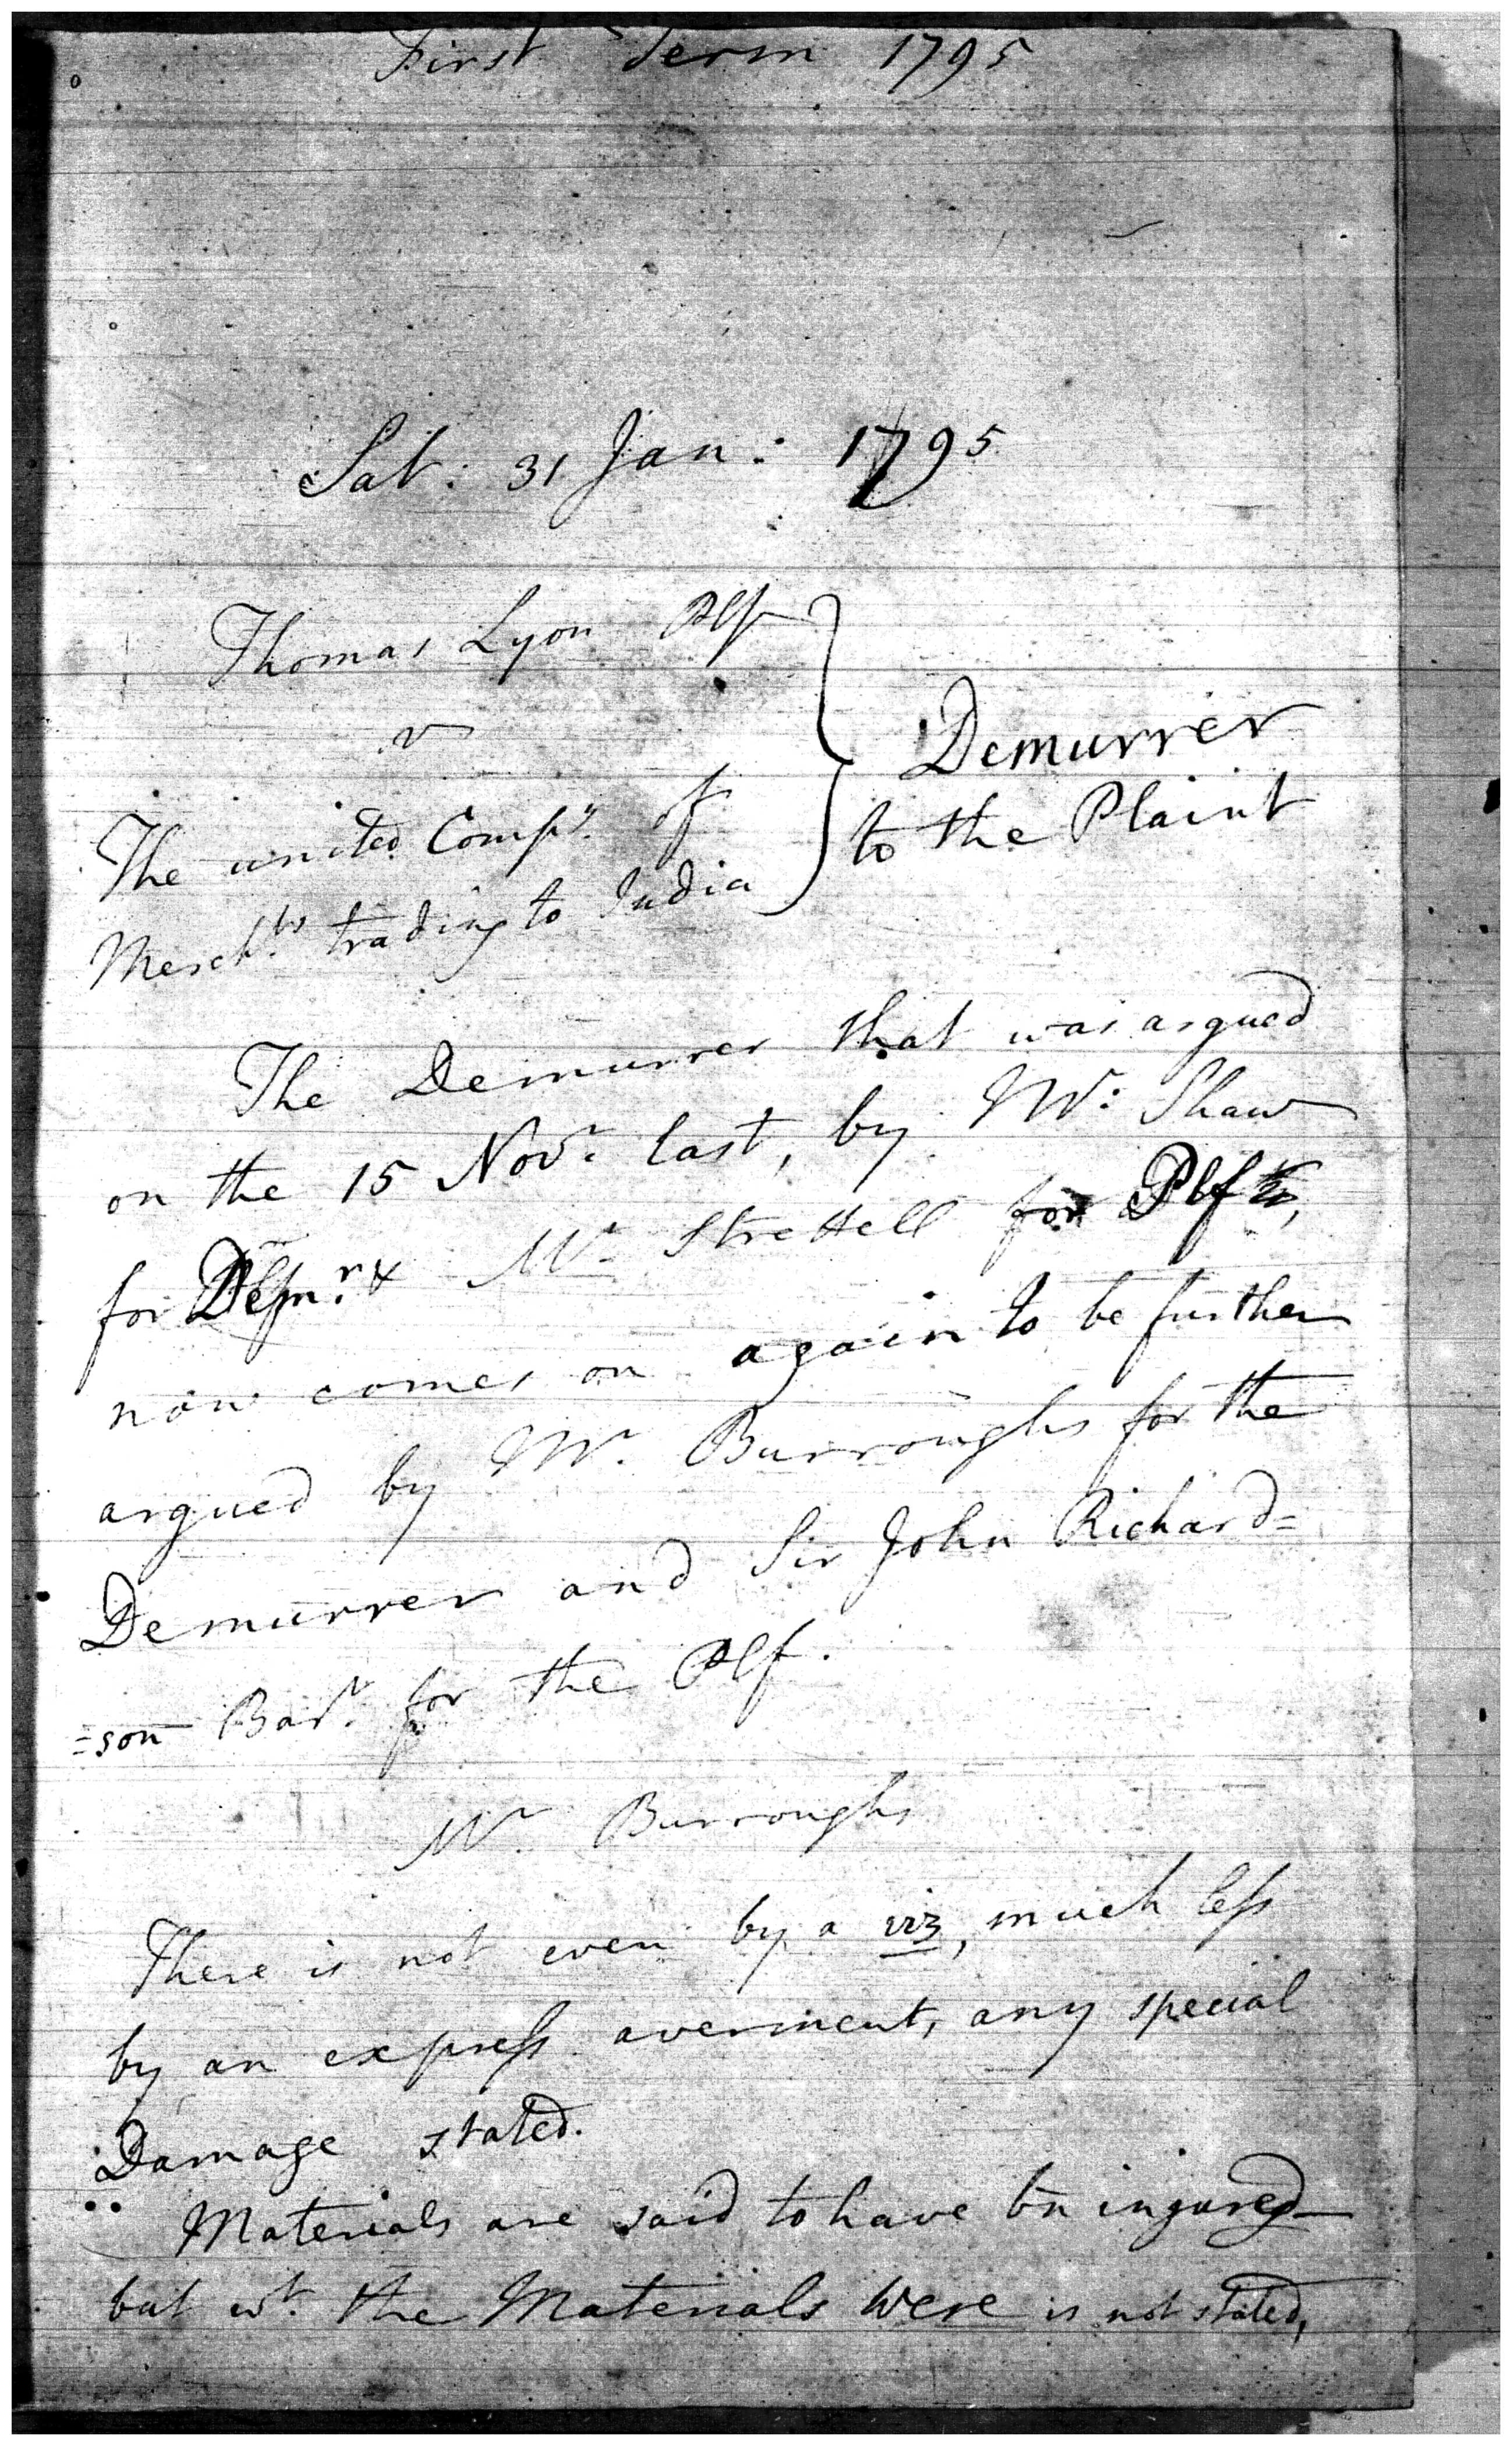 First Term 1795
Sat: 31 Jan: 1795
Thomas Lyon Plf
v
The united Compy. of
Merchts. trading to India
Demurrer
to the Plaint
The Demurrer that was argued
on the 15 Novr. last, by Mr: Shaw
for Demr. & Mr. Strettell for Plf,
now comes on again to be further
argued by Mr. Burroughs for the
Demurrer and Sir John Richard=
=son Bart. for the Plf.
Mr. Burroughs
There is not even by a viz, much less
by an express averment, any special
Damage stated.
Materials are said to have bn injured
but wt. the Materials were is not stated,